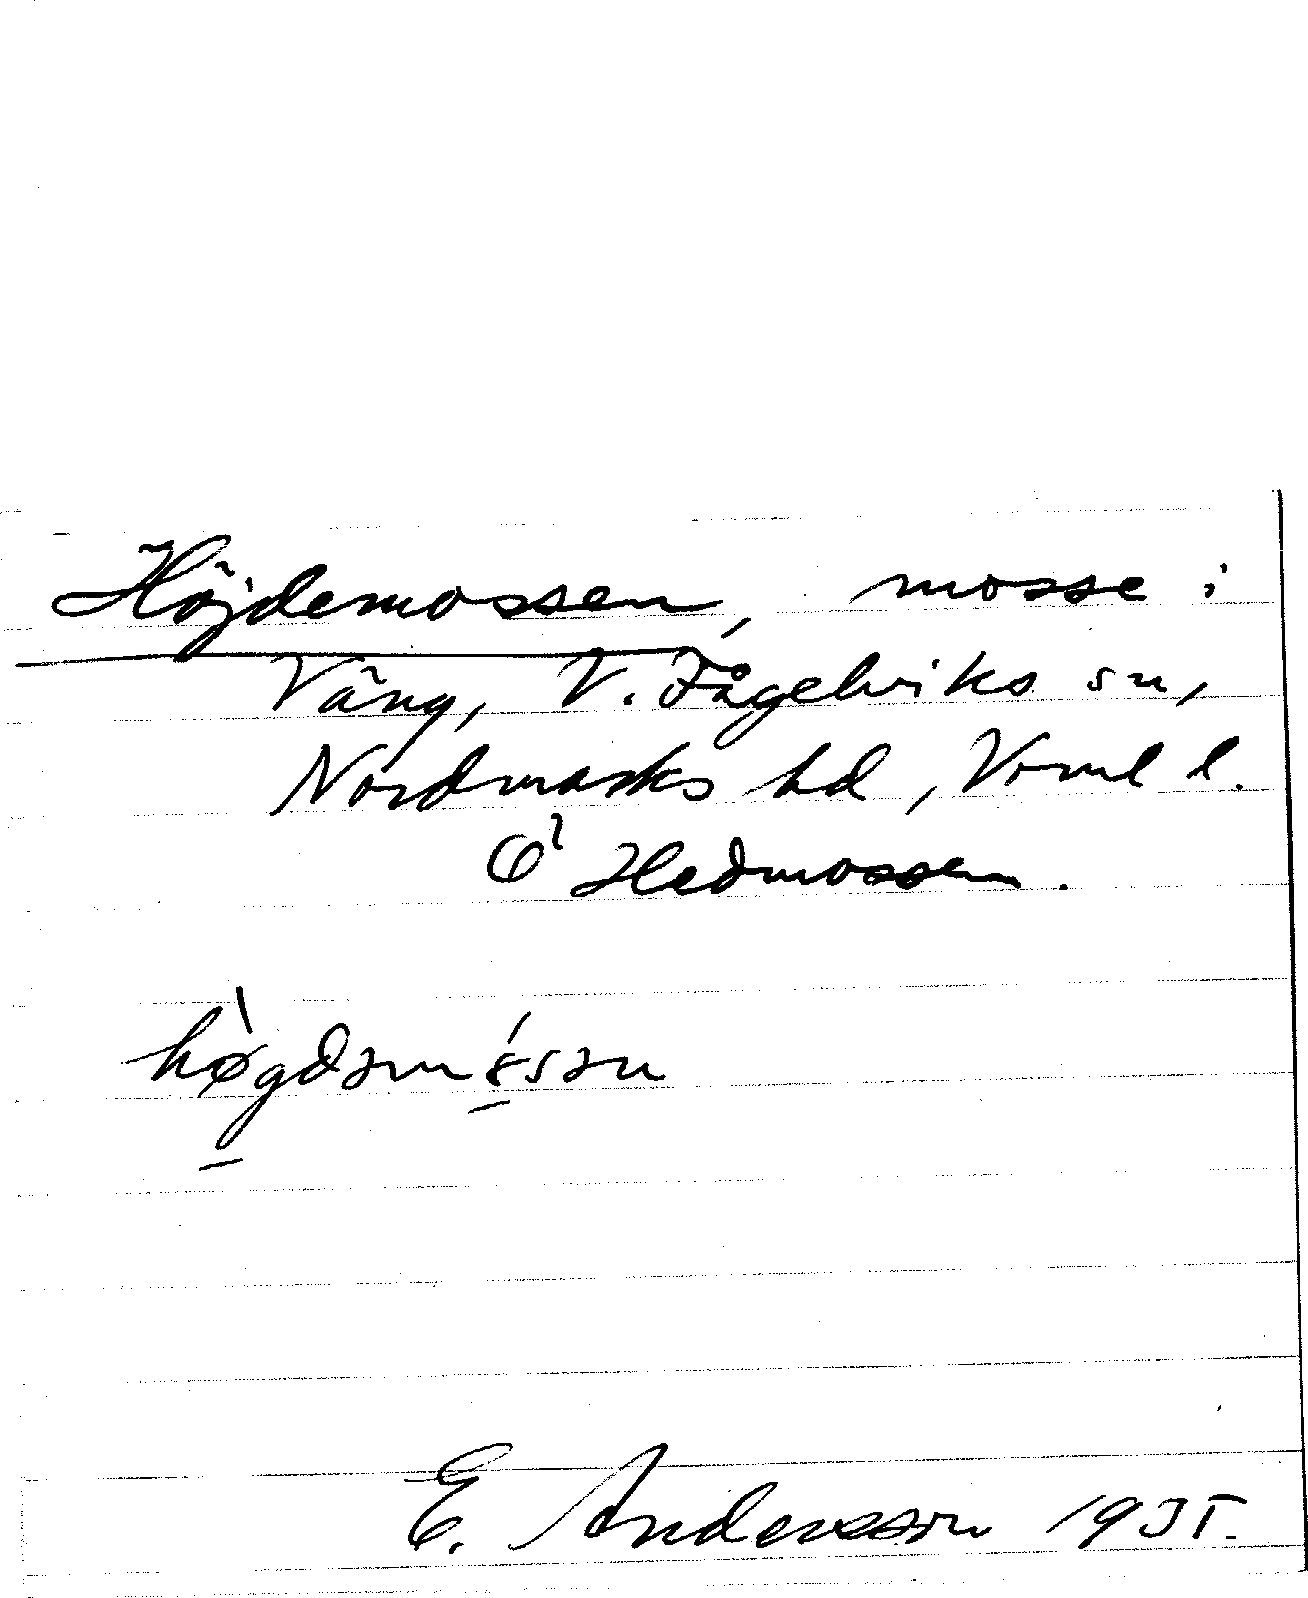 Höjdemossen, mosse i
Väng, V. Fågelviks sn,
Nordmarks hd, Vrml l.
Hedmossen.
E. Andersson 1935.